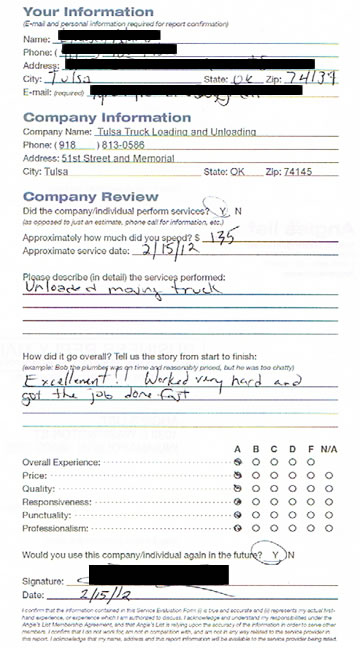 Your Information
(E-mail and personal information required for report confirmation)
Name:
Phone: (
Address:
City: Tulsa State: OK Zip: 74134
E-mail: (required)
Company Information
Company Name: Tulsa Truck Loading and Unloading
Phone: ( 918 ) 813-0586
Address: 51st Street and Memorial
City: Tulsa State: OK Zip: 74145
Company Review
Did the company/individual perform services? Y N
(as opposed to just an estimate, phone call for information, etc.)
Approximately how much did you spend? $ 135
Approximate service date: 2/15/12
Please describe (in detail) the services performed:
Unloaded moving truck
How did it go overall? Tell us the story from start to finish:
(example: Bob the plumber was on time and reasonably priced, but he was too chatty)
Excellenent!! Worked very hard and
got the job done fast
A B C D F N/A
Overall Experience:
Price:
Quality:
Responsiveness:
Punctuality:
Professionalism:
Would you use this company/individual again in the future? Y N
Signature:
Date: 2/15/12
I confirm that the information contained in this Service Evaluation Form (i) is true and accurate and (ii) represents my actual first-
hand experience, or experience which I am authorized to discuss. I acknowledge and understand my responsibilities under the
Angie's List Membership Agreement, and that Angie's List is relying upon the accuracy of the information in order to serve other
members. I confirm that I do not work for, am not in competition with, and am not in any way related to the service provider in
this report. I acknowledge that my name, address and this report information will be available to the service provider being rated.